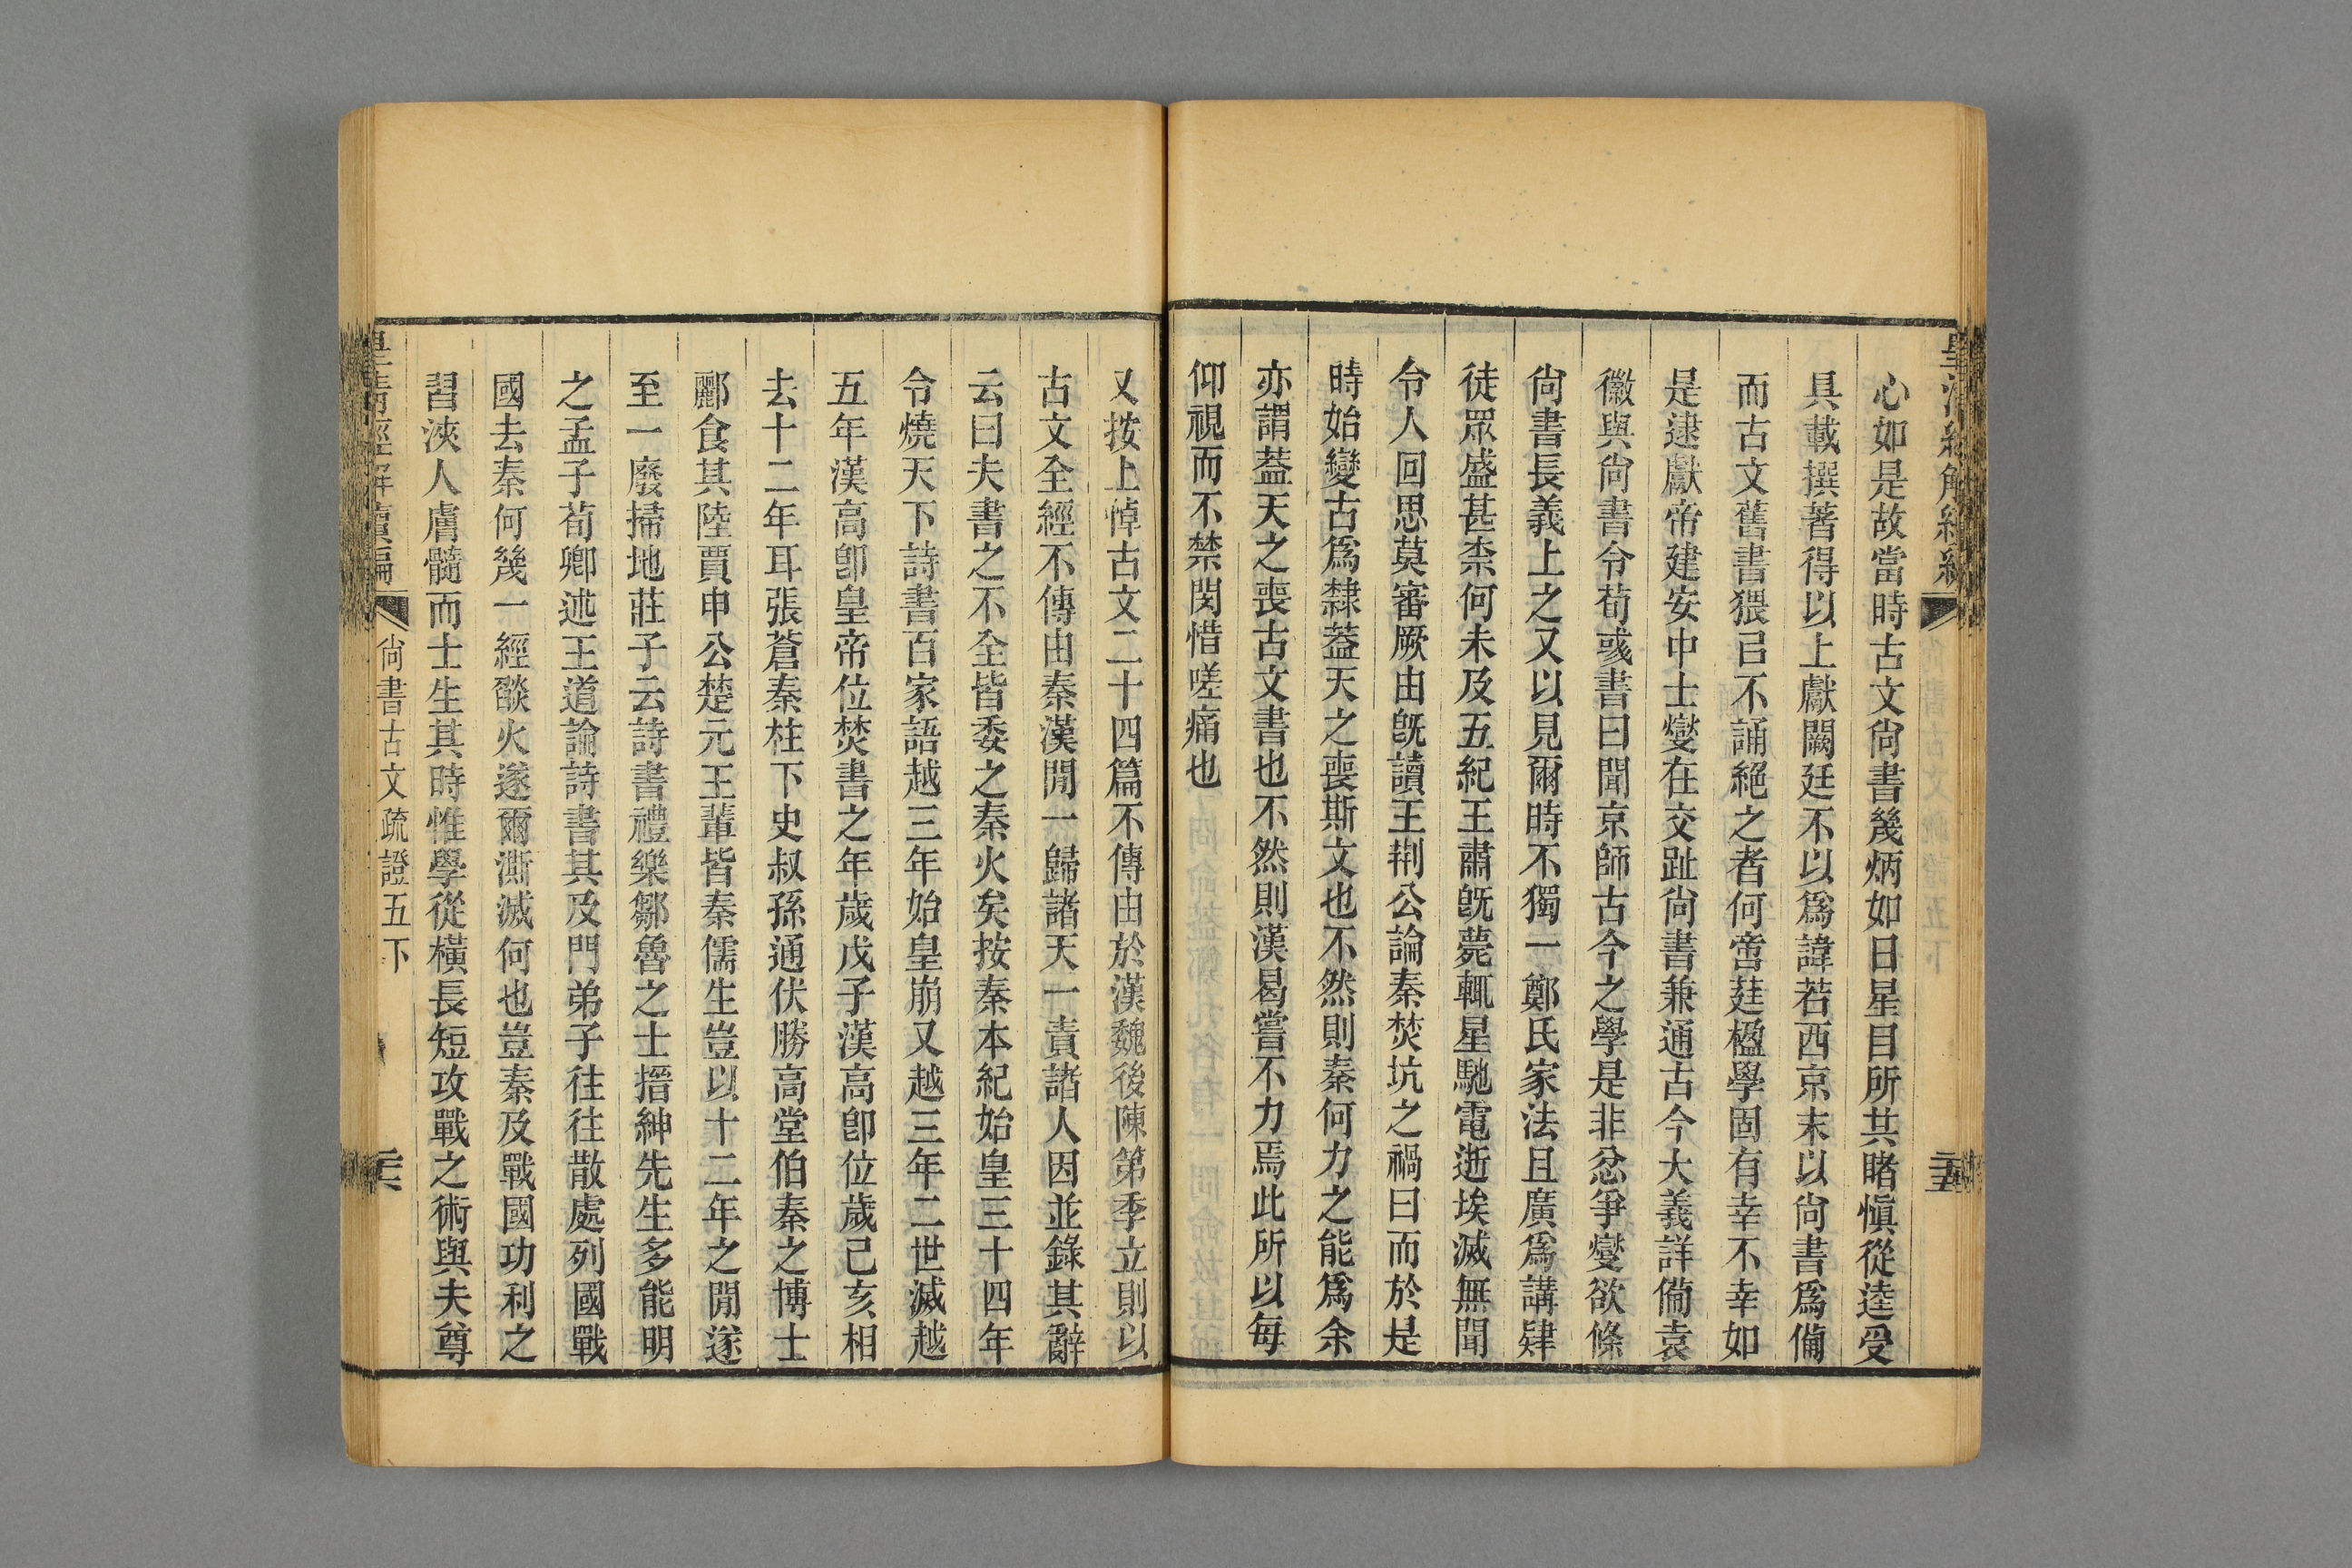 心如是故當時古文尙書幾炳如日星目所共睹愼從逵受
具載撰著得以上獻闕廷不以爲諱若西京末以尙書爲備
而古文舊書猥㠯不誦絕之者何啻莛楹學固有幸不幸如
是逮獻帝建安中士燮在交趾尙書兼通古今大義詳備袁
徽與尙書令荀彧書曰聞京師古今之學是非忿爭燮欲條
尙書長義上之又以見爾時不獨一鄭氏家法且廣爲講肄
徒眾盛甚柰何未及五紀王肅旣薨輒星馳電逝埃滅無聞
令人回思莫審厥由旣讀王荆公論秦焚坑之禍曰而於是
時始變古爲隸葢天之喪斯文也不然則秦何力之能爲余
亦謂葢天之喪古文書也不然則漢曷嘗不力焉此所以每
仰視而不禁閔惜嗟痛也
又按上悼古文二十四篇不傳由於漢魏後陳第季立則以
古文全經不傳由秦漢閒一歸諸天一責諸人因並錄其辭
云曰夫書之不全皆委之秦火矣按秦本紀始皇三十四年
令燒天下詩書百家語越三年始皇崩又越三年二世滅越
五年漢高卽皇帝位焚書之年歲戊子漢高卽位歲己亥相
去十二年耳張蒼秦柱下史叔孫通伏勝高堂伯秦之博士
酈食其陸賈申公楚元王輩皆秦儒生豈以十二年之閒遂
至一廢掃地莊子云詩書禮樂鄒魯之士搢紳先生多能明
之孟子荀卿述王道論詩書其及門弟子往往散處列國戰
國去秦何幾一經燄火遂爾澌滅何也豈秦及戰國功利之
習浹人膚髓而士生其時惟學從橫長短攻戰之術與夫尊
皇淸經解續編
尙書古文疏證五下